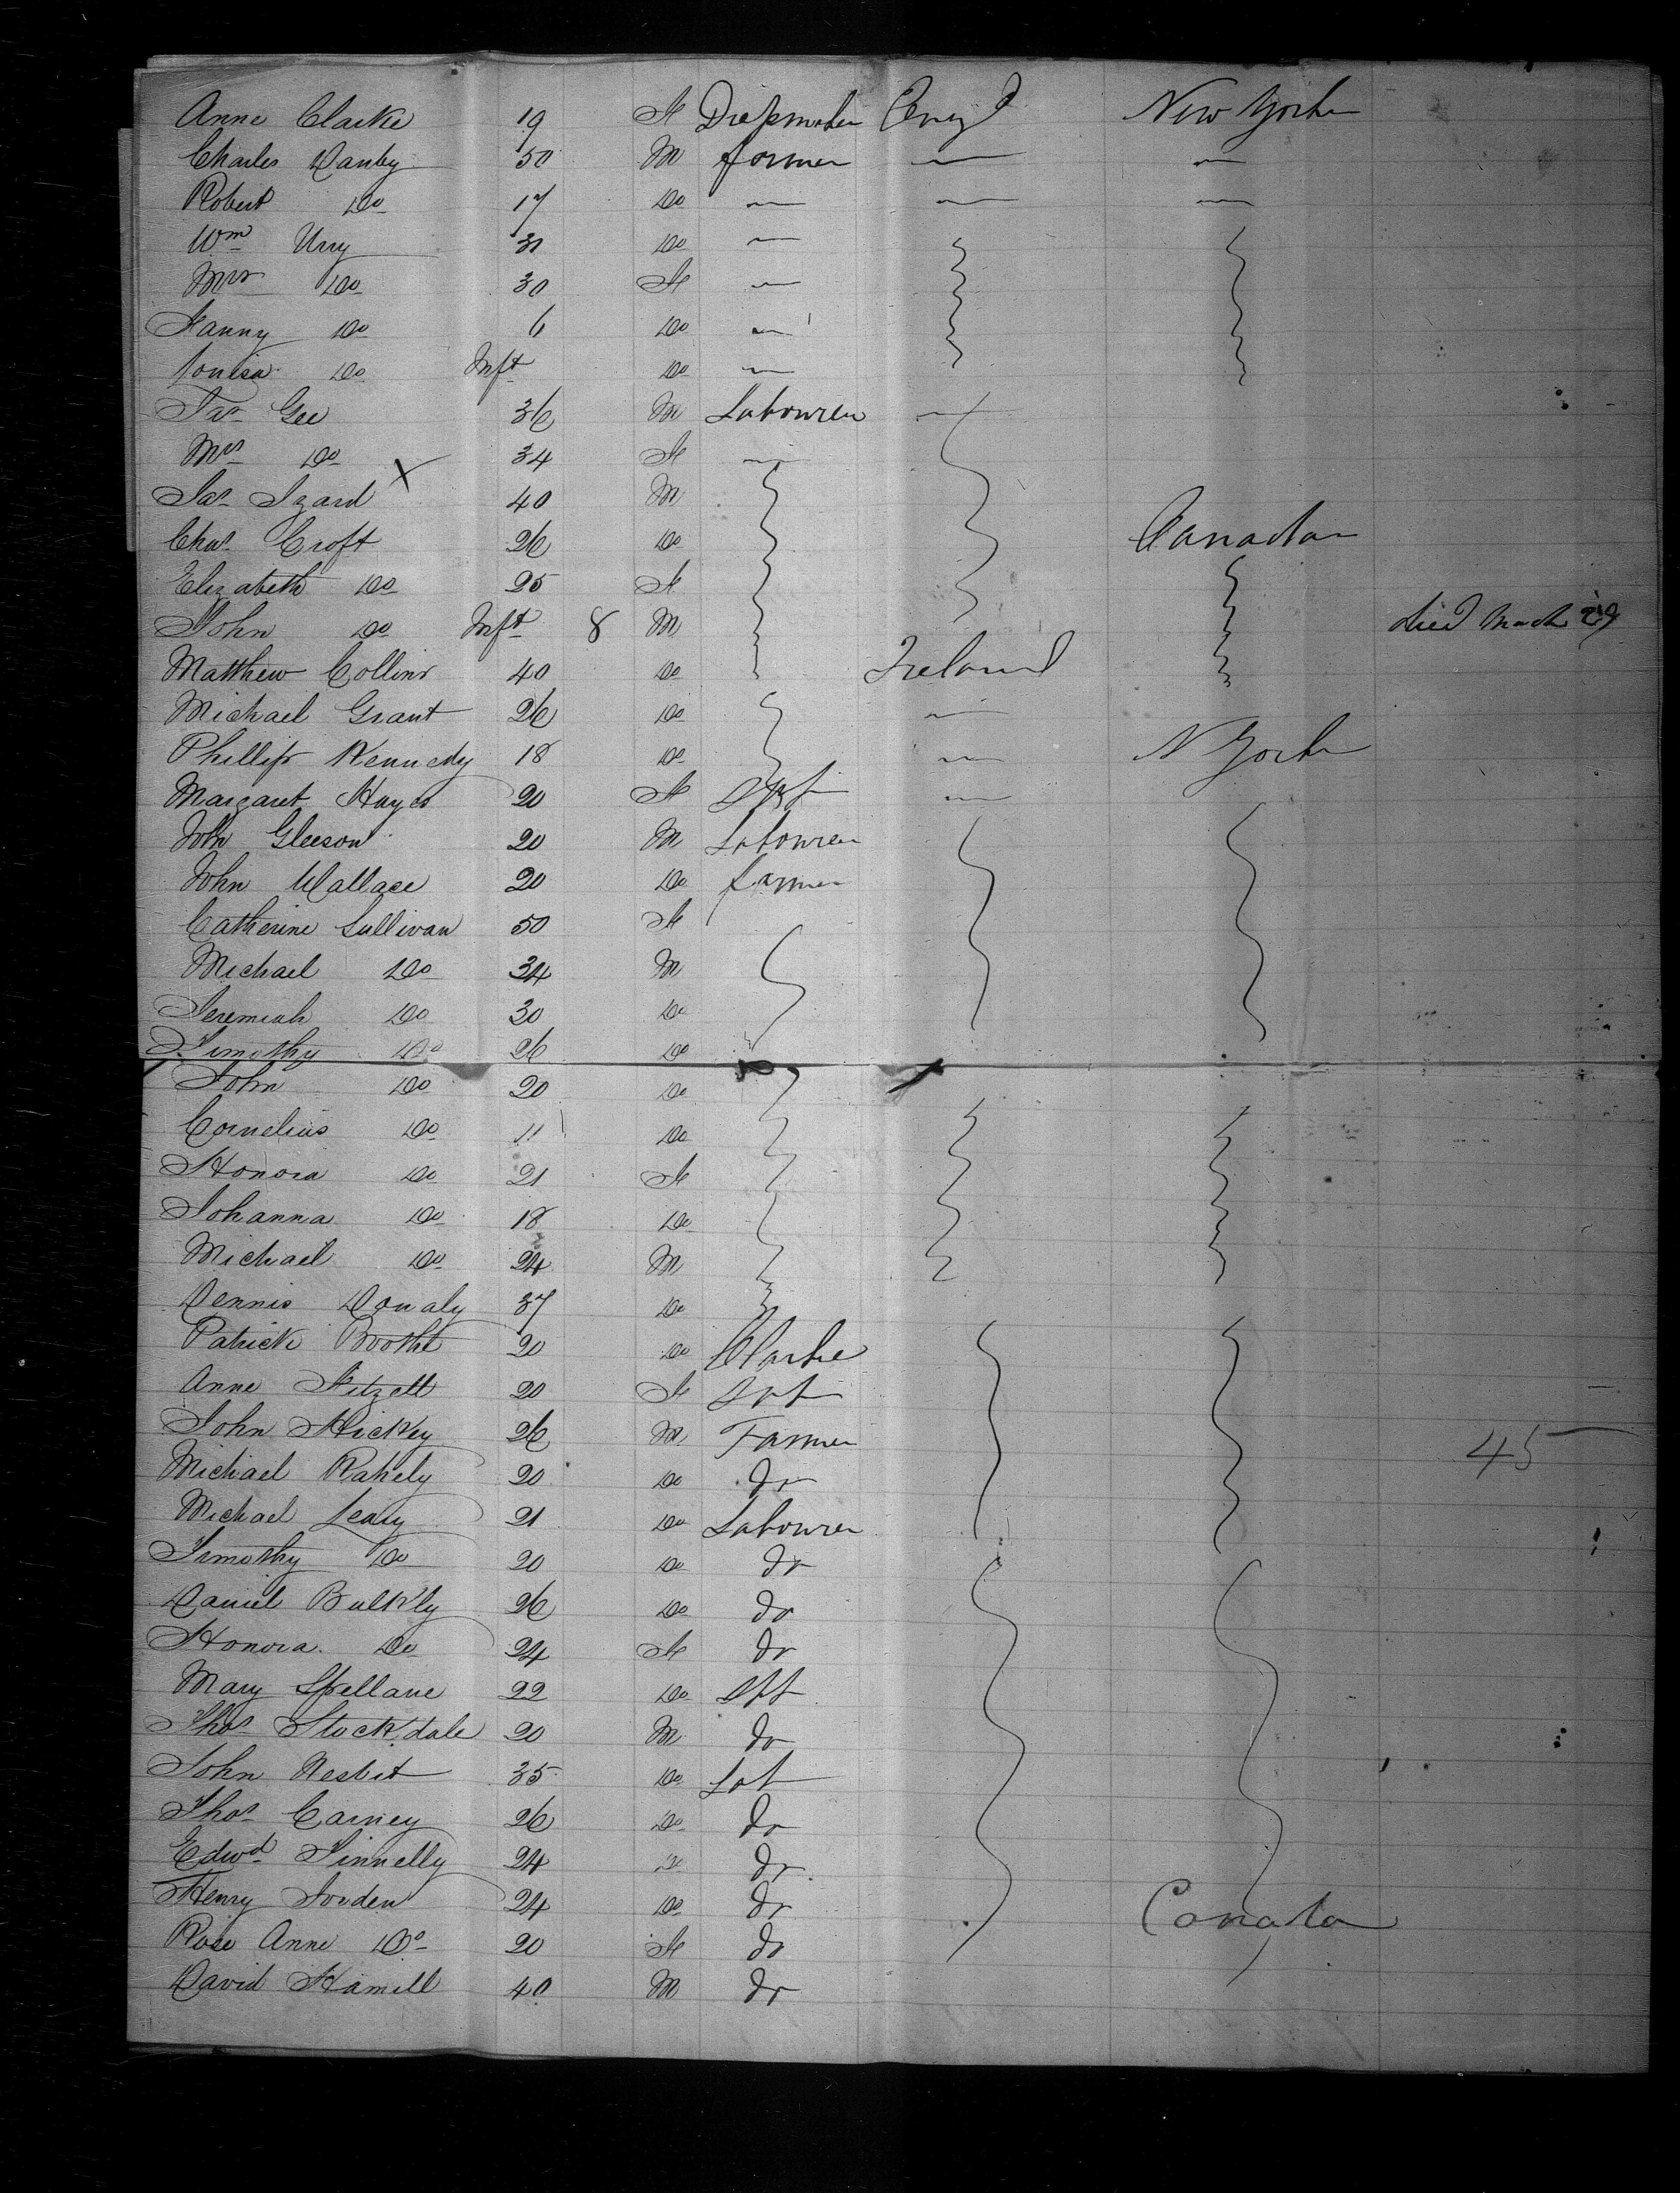 Anne Clarke 19 F Dressmaker Engd New York
Charles Danby 50 M farmer — —
Robert Do 17 Do — — —
Wm Urry 31 Do —
Mrs Do 30 F —
Fanny Do 6 Do —
Louisa Do Inft Do —
Jas Gee 36 M Labourer —
Mrs Do 34 F —
X
Jas Izard 40 M
Chas Croft 26 Do Canada
Elizabeth Do 25 F
John Do Inft 8 M died March
Matthew Collins 40 Do Ireland
Michael Grant 26 Do —
Phillip Kennedy 18 Do — N York
Margaret Hayes 20 F —
John Gleeson 20 M Labourer
John Wallace 20 Do farmer
Catherine Sullivan 50 F
Michael Do 34 M
Jeremiah Do 30 Do
Timothy Do 26 Do
John Do 20 Do
Cornelius Do 11 Do
Honora Do 21 F
Johanna Do 18 Do
Michael Do 24 M
Dennis Donaly 37 Do
Patrick 20 Do Clarke
Anne 20 F
John Hickey 26 M Farmer
45
Michael Rahely 20 Do do
Michael Leary 21 Do Labourer
Timothy Do 20 Do do
Daniel Bulkly 26 Do do
Honora Do 24 F do
Mary Spellane 22 Do
Thos Stockdale 20 M do
John Nesbit 35 Do Lab
Thos Carney 26 Do do
Edwd Finnelly 24 Do do
Henry Jorden 24 Do do Canada
Rose Anne Do 20 F do
David Hamill 40 M do